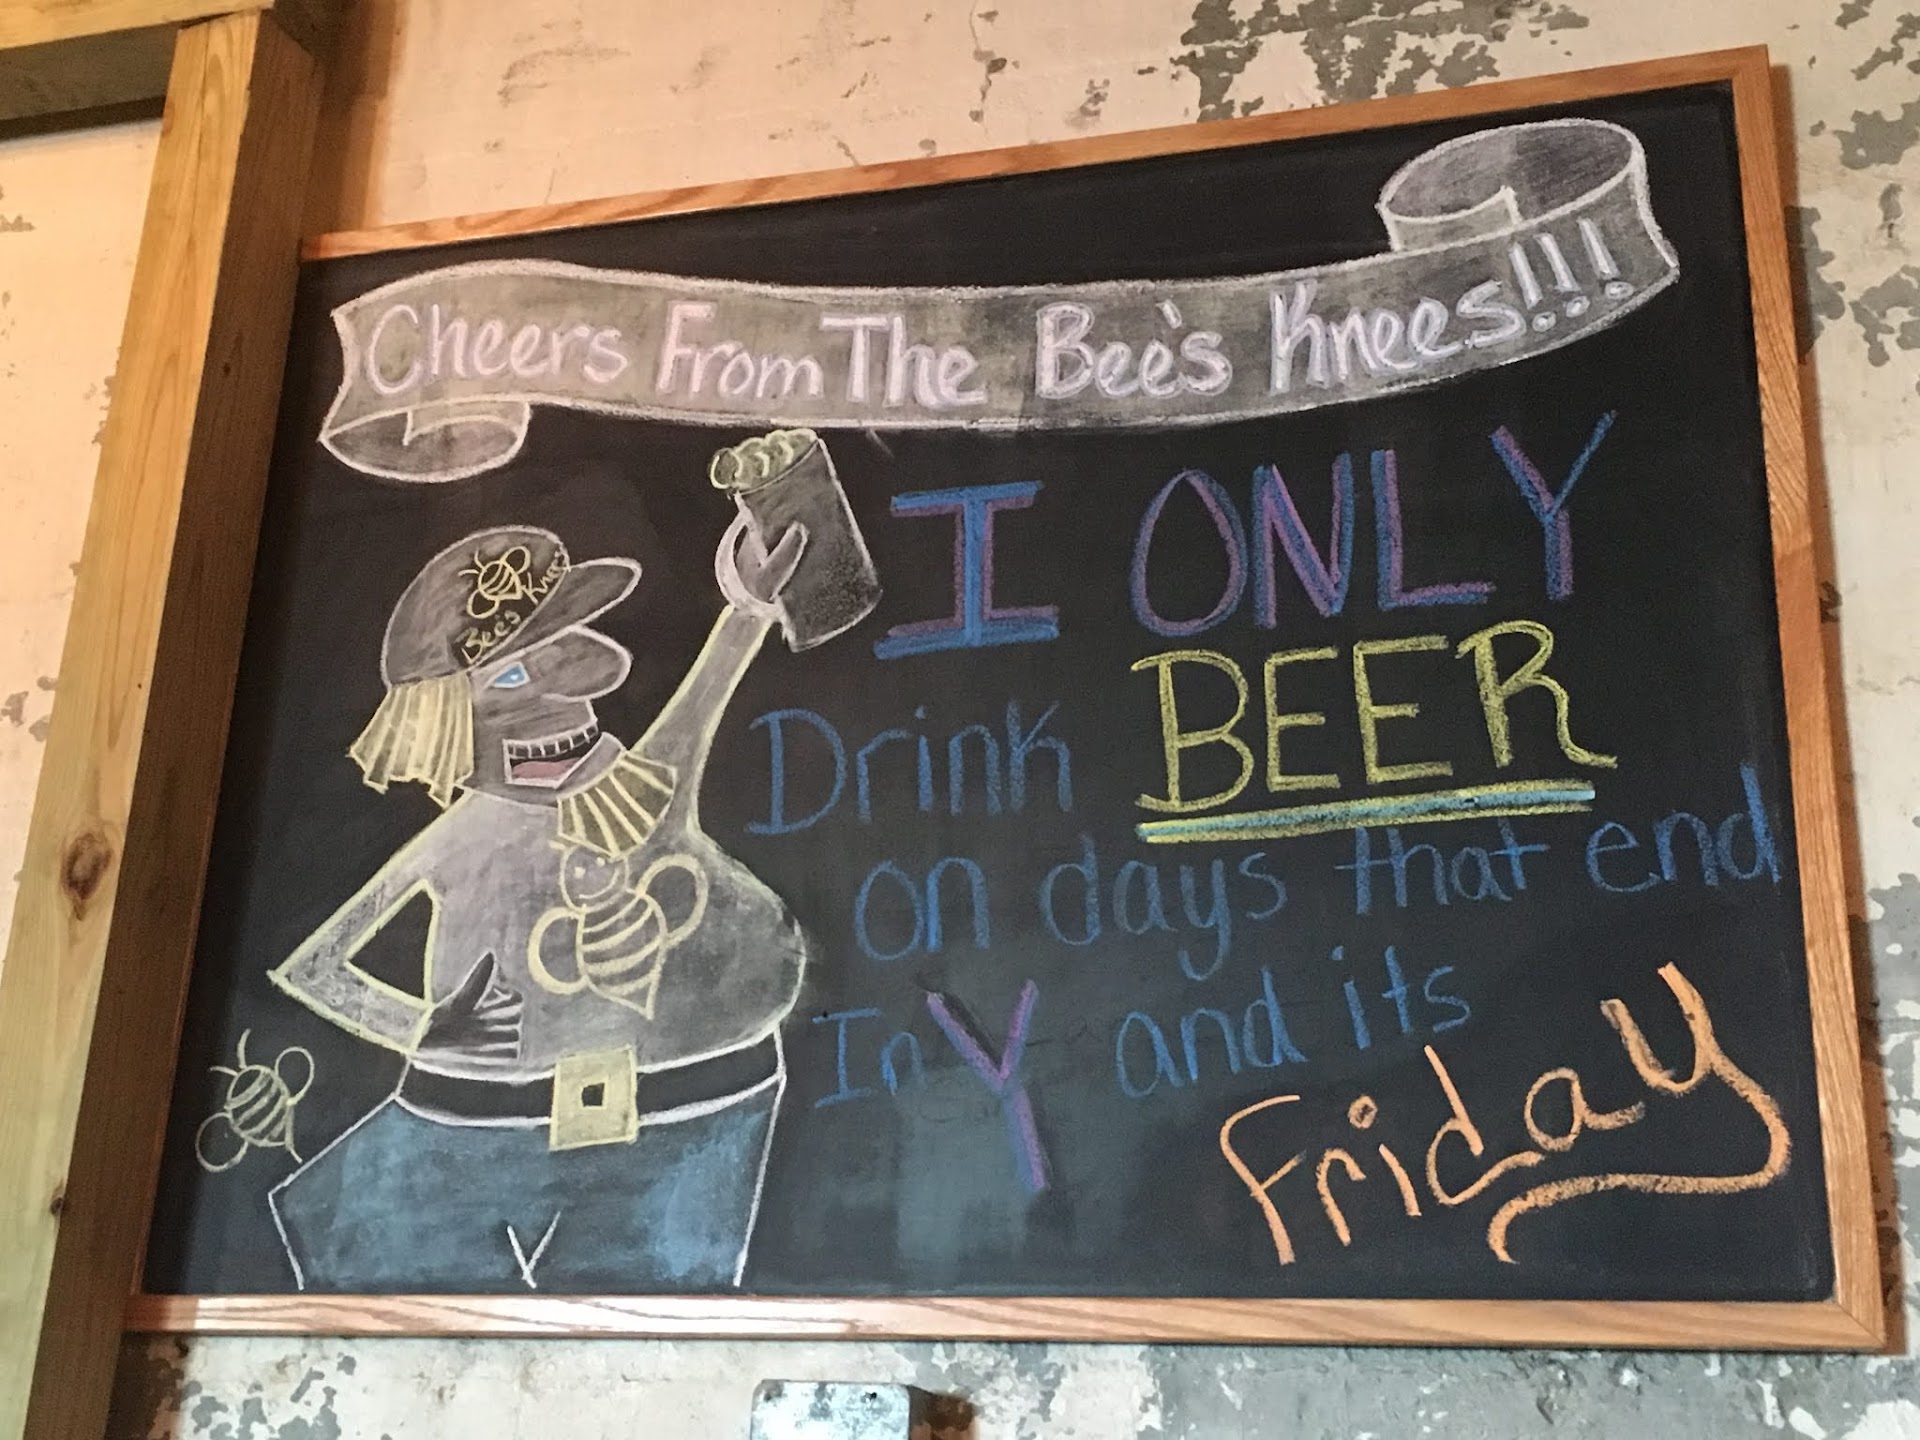 Cheers From The Bee's Knees!!!
Bee's Knees
I ONLY
Drink BEER
on days that end
In Y and its
Friday